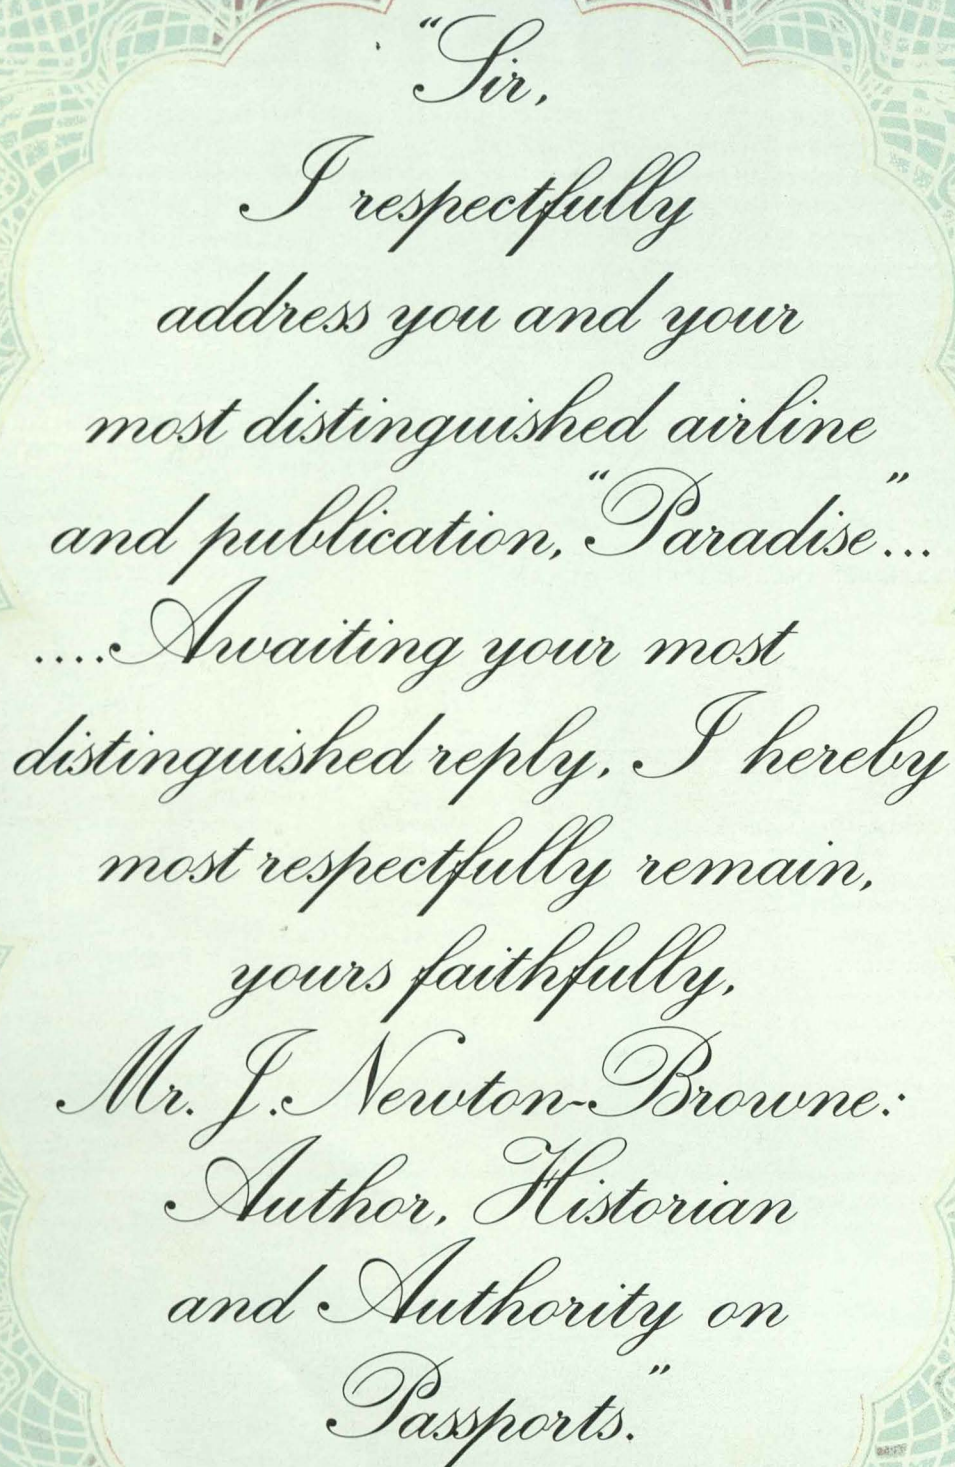 “Sir,
I respectfully
address you and your
most distinguished airline
and publication, “Paradise”...
....Awaiting your most
distinguished reply, I hereby
most respectfully remain,
yours faithfully,
Mr. J. Newton-Browne:
Author, Historian
and Authority on
Passports.”